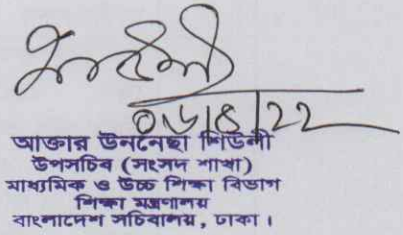 ০৬/৪/22
আক্তার উননেছা শিউলী
উপসচিব (সংসদ শাখা)
মাধ্যমিক ও উচ্চ শিক্ষা বিভাগ
শিক্ষা মন্ত্রণালয়
বাংলাদেশ সচিবালয়, ঢাকা।